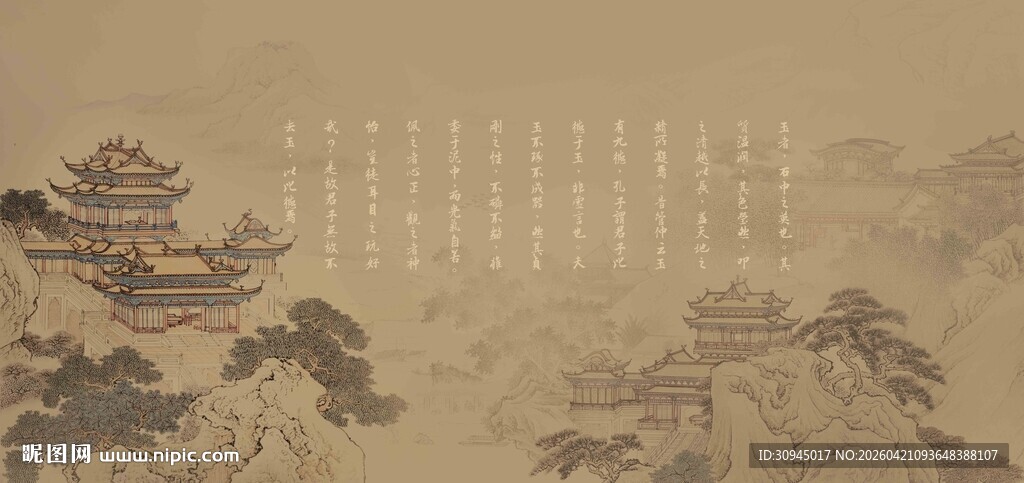 玉者，石中之美也。其
質温潤，其色瑩然，叩
之清越以長，蓋天地之
精所凝焉。昔管仲云玉
有九德，孔子謂君子比
德于玉，非虛言也。夫
玉不琢不成器，然其貞
剛之性，不磷不緇，雖
委于泥中，而光氣自若。
佩之者心正，觀之者神
怡，豈徒耳目之玩好
哉？是故君子無故不
去玉，以比德焉
昵图网 www.nipic.com
ID:30945017 NO:20260421093648388107